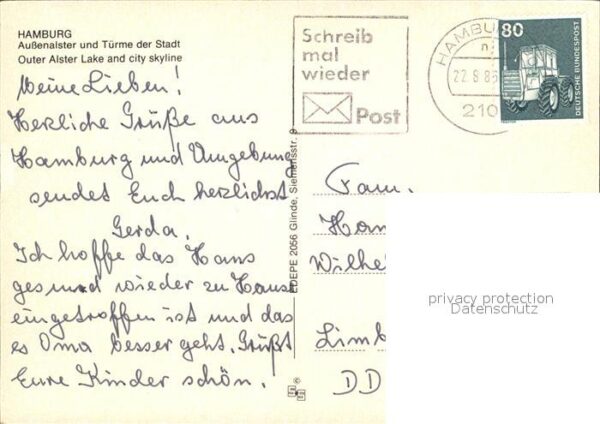 HAMBURG
Außenalster und Türme der Stadt
Outer Alster Lake and city skyline
Meine Lieben!
Herzliche Grüße aus
Hamburg und Umgebung
sendet Euch herzlichst
Gerda.
Ich hoffe das Hans
gesund wieder zu Hause
eingetroffen ist und das
es Oma besser geht. Grüßt
Eure Kinder schön.
EDEPE 2056 Glinde, Siemensstr. 9
Schreib
mal
wieder
Post
HAMBU
n
22.9.86
210
80
DEUTSCHE BUNDESPOST
Fam.
Han
Wilhe
Limb
DD
privacy protection
Datenschutz